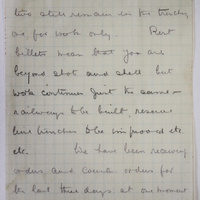 two still remain in the trenches
as for work only. Rest
billets mean that you are
beyond shot and shell but
work continues just the same —
railways to be built, reserve
line trenches to be improved etc
etc. We have been receiving
orders and counter orders for
the last three days at one moment